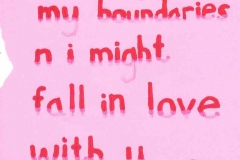 my boundaries
n i might
fall in love
with u